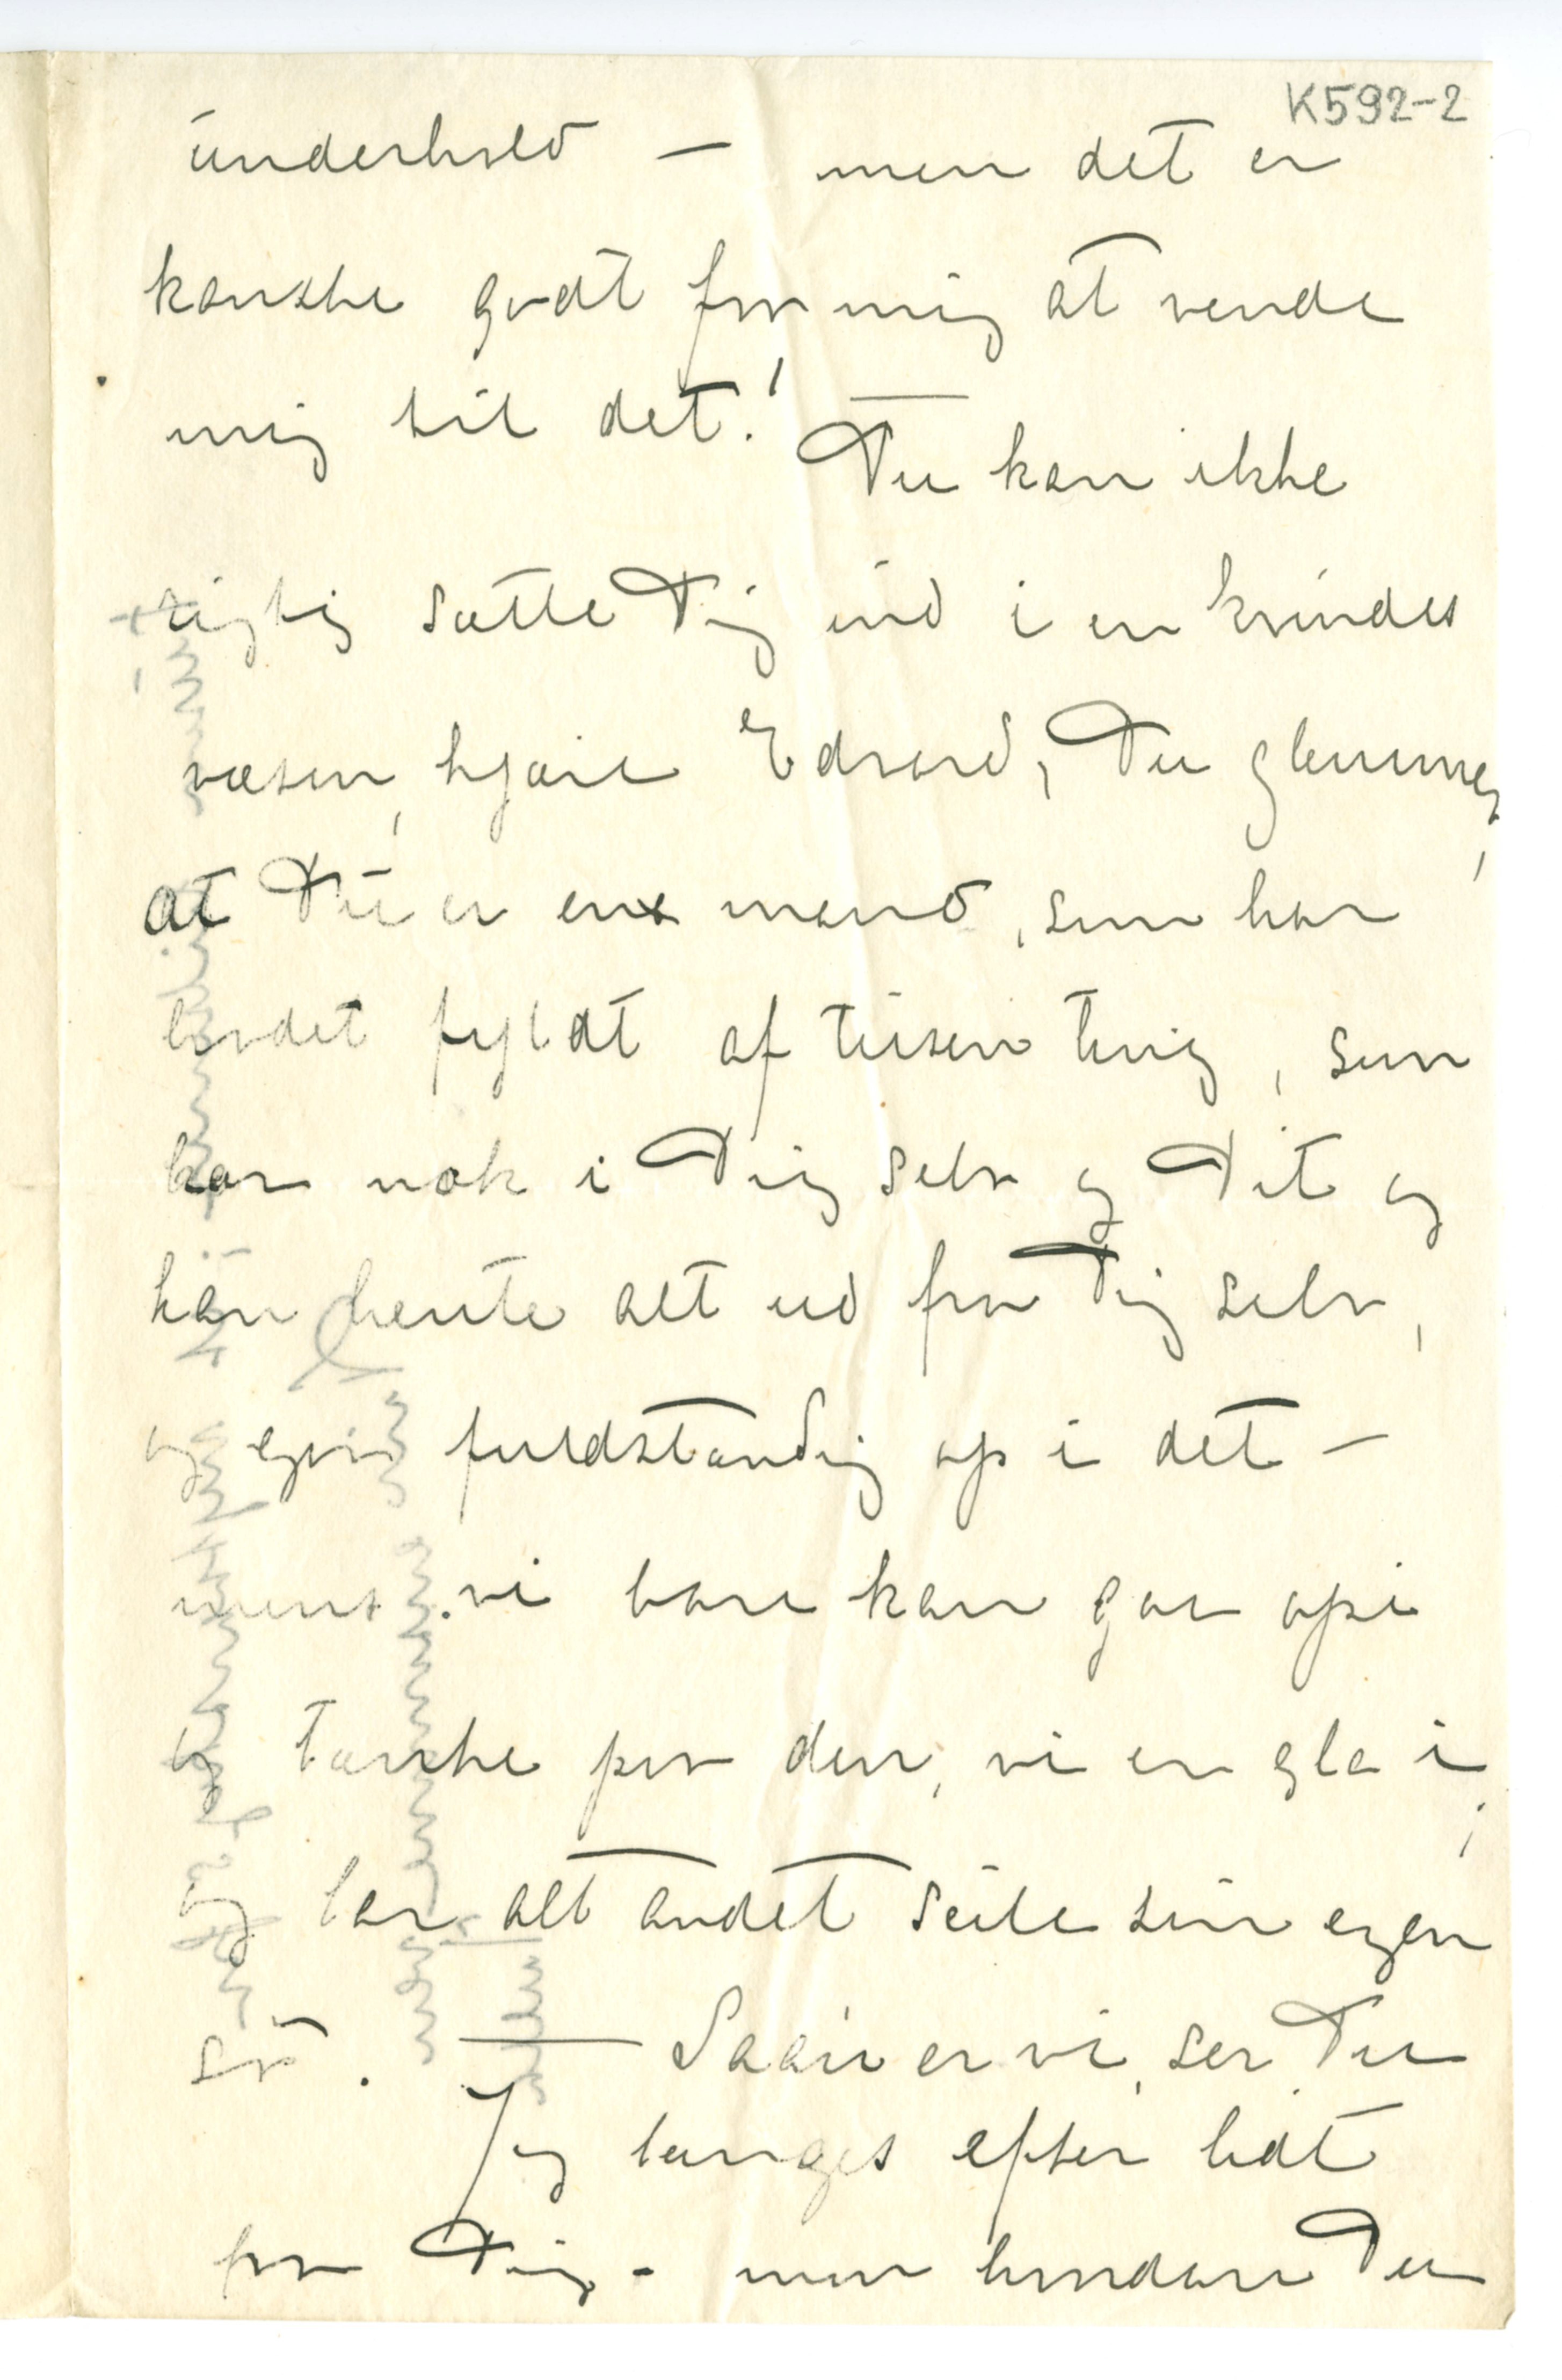 K592-2
underhold — men det er
kanske godt for mig at vende
mig til det! — Du kan ikke
rigtig sætte Dig ind i en kvindes
væsen, kjære Edvard, Du glemmer,
at Du er en mand, som har
hodet fyldt af tusen ting, som
har nok i Dig selv og Dit og
kan hente alt ud fra Dig selv,
og gaa fuldstændig op i det —
mens vi bare kan gaa op i
og tænke paa den, vi er gla i,
og lar alt andet seile sin egen
sjø. — Saan er vi, ser Du
Jeg længes efter lidt
fra Dig - men hvordan Du